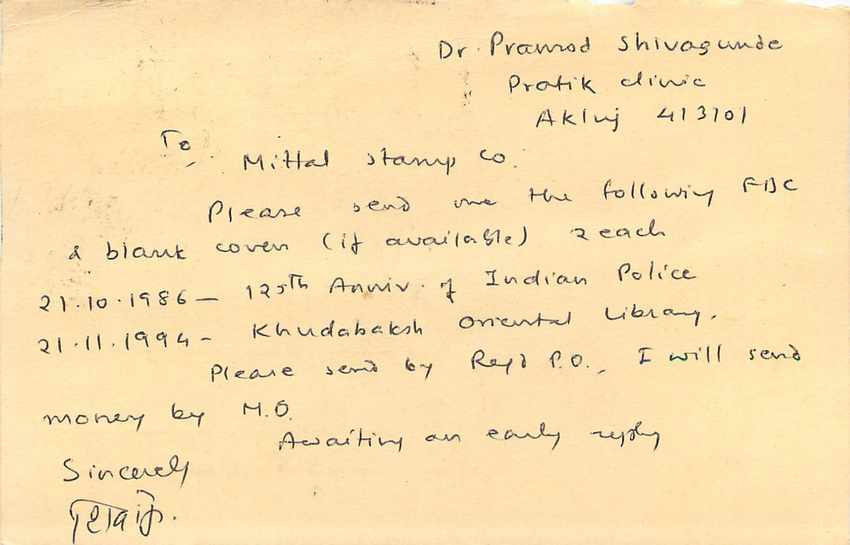 Dr. Pramod Shivagunde
Pratik clinic
Akluj 413101
To
Mittal stamp co.
Please send me the following FDC
& blank cover (if available) 2 each
21.10.1986 – 125th Anniv. of Indian Police
21.11.1994 – Khudabaksh oriental Library.
Please send by Regd P.O., I will send
money by M.O.
Awaiting an early reply
Sincerely